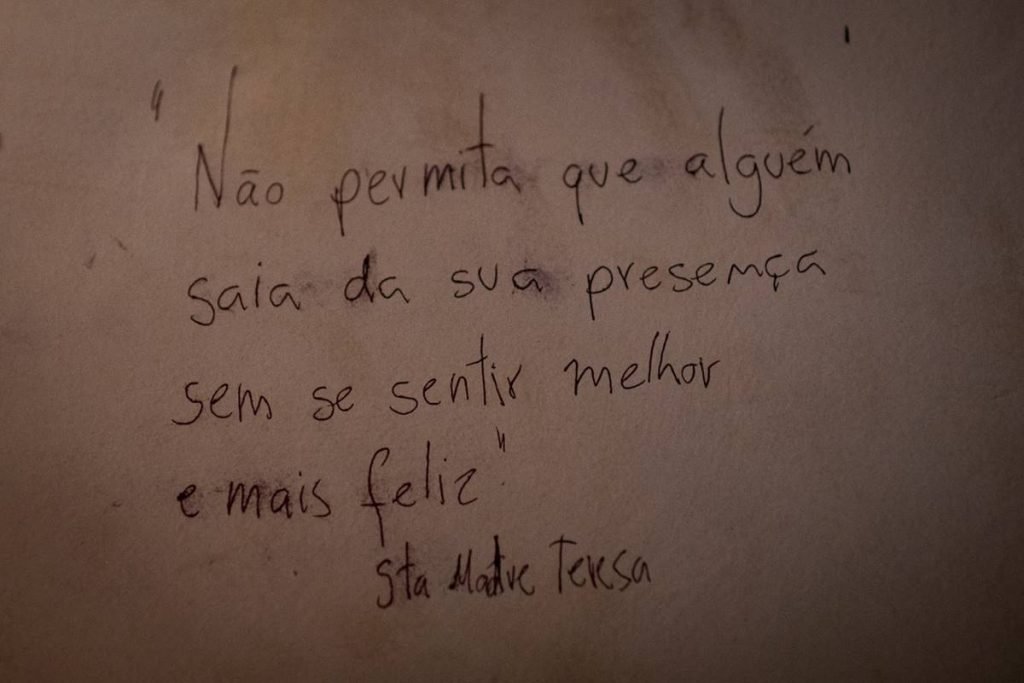 "Não permita que alguém
saia da sua presença
sem se sentir melhor
e mais feliz"
Sta Madre Teresa